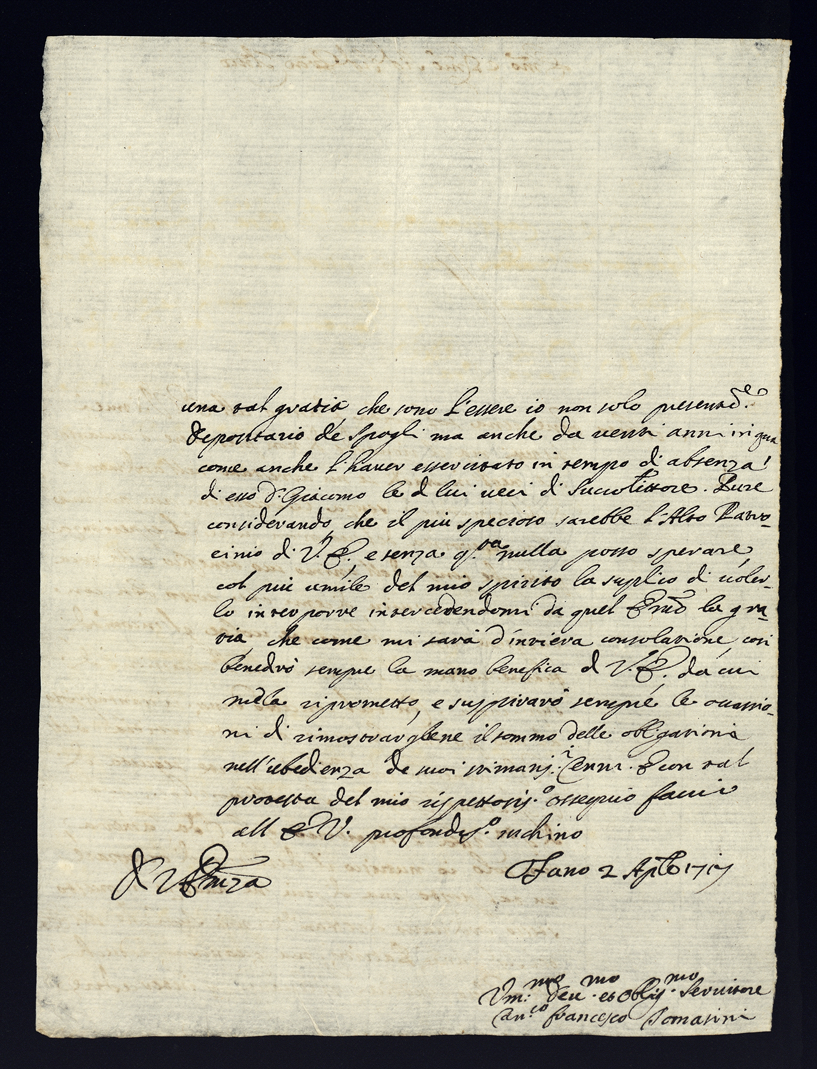 una tal gratia, che sono l'essere io non solo presentem.e
depositario de Spogli ma anche da venti anni in qua
come anche l'haver essercitato in tempo di absenza
di esso Dr Giacomo le di lui veci di Succolletore. Pure
considerando, che il più specioso sarebbe l'Alto Patro-
cinio di V.E., e senza q.sto nulla posso sperare,
col più umile del mio spirito la suplico di voler-
lo interporre intercedendomi da quel Emo la gra-
tia, che come mi sarà d'intiera consolatione, così
benedirò sempre la mano benefica di V.E., da cui
me la riprometto, e suspirarò sempre le occasio-
ni di rimostrarglene il sommo delle obligationi
nell'ubedienza de suoi stimatis.i Cenni. E con tal
protesta del mio rispettosis.o ossequio faccio
all E V. profondis.o inchino
Di V Eenza
Fano 2 Aple 1717
Vm:mo Deu.mo et Oblig.mo Servitore
Can.co Francesco Tomasini